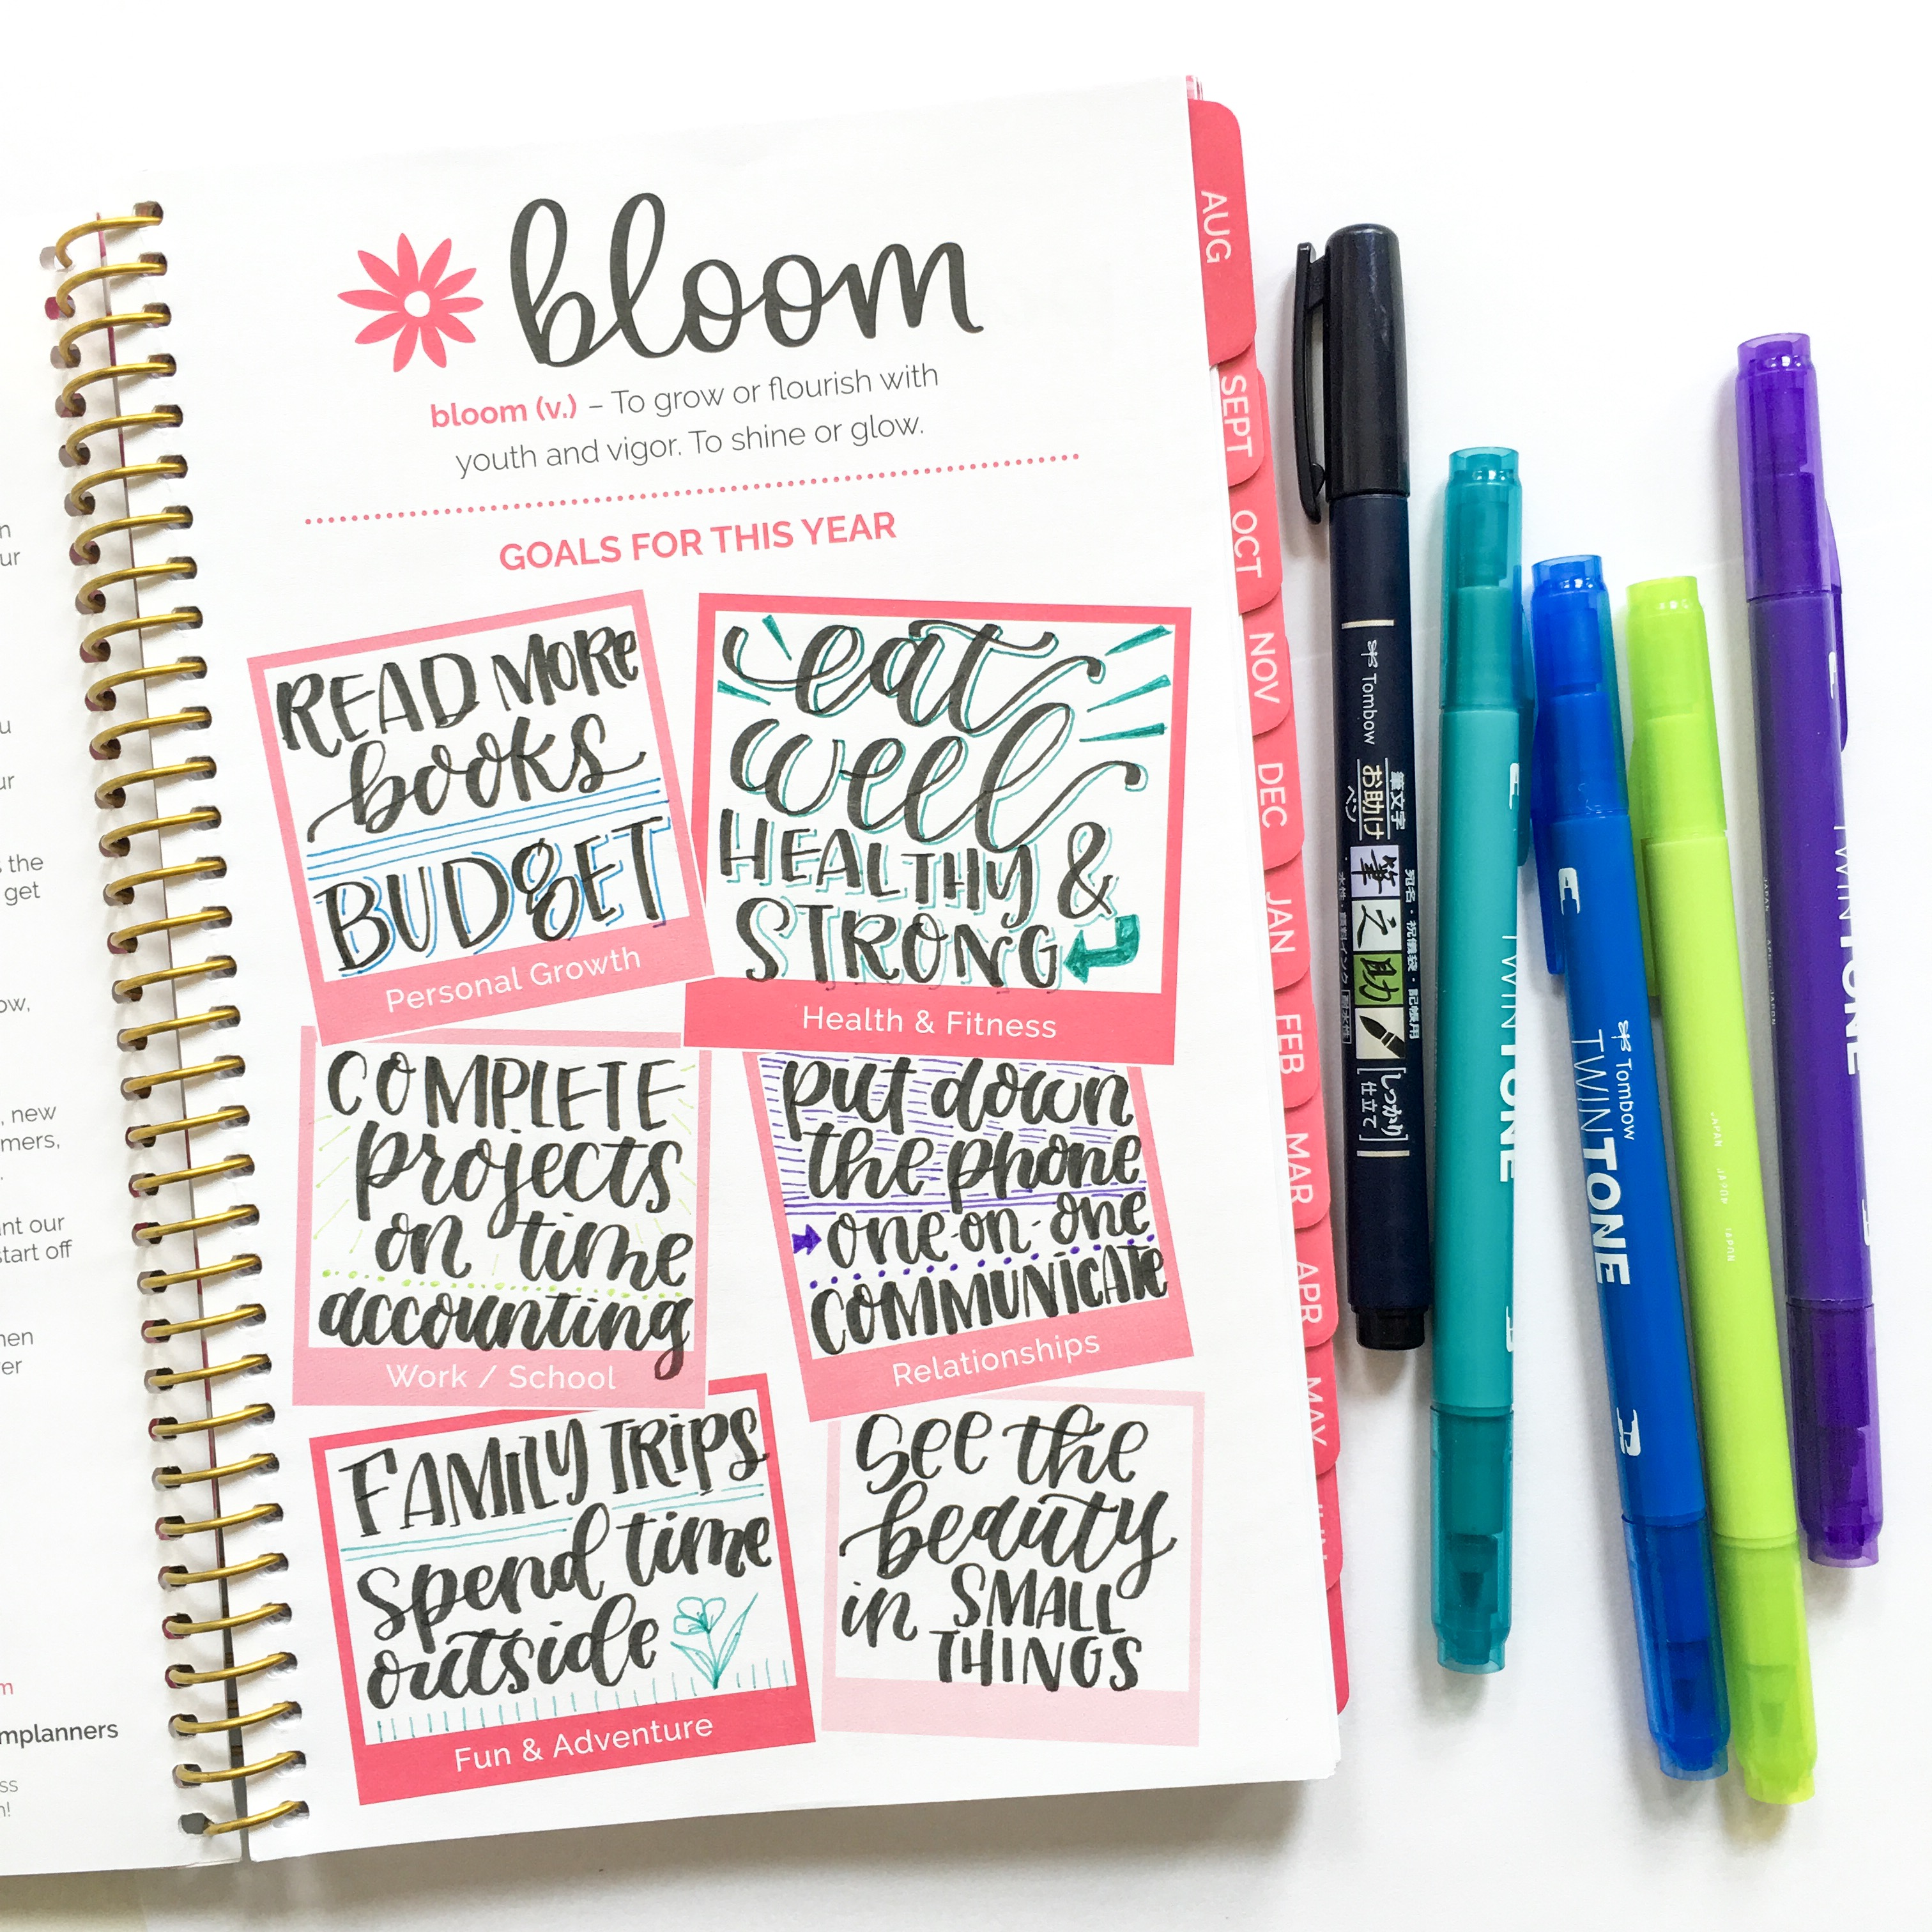 bloom
bloom (v.) – To grow or flourish with
youth and vigor. To shine or glow.
GOALS FOR THIS YEAR
READ MORE
books
BUDGET
Personal Growth
eat
well
HEALTHY &
STRONG
Health & Fitness
COMPLETE
projects
on time
accounting
Work / School
put down
the phone
one-on-one
COMMUNICATE
Relationships
FAMILY TRIPS
spend time
outside
Fun & Adventure
See the
beauty
in SMALL
THINGS
AUG
SEPT
OCT
NOV
DEC
JAN
FEB
MAR
APR
MAY
the
get
new
start off
mplanners
Tombow
筆文字
お助け
ペン
筆之助
しっかり
仕立て
TWINTONE
Tombow
TWINTONE
TWINTONE
JAPAN